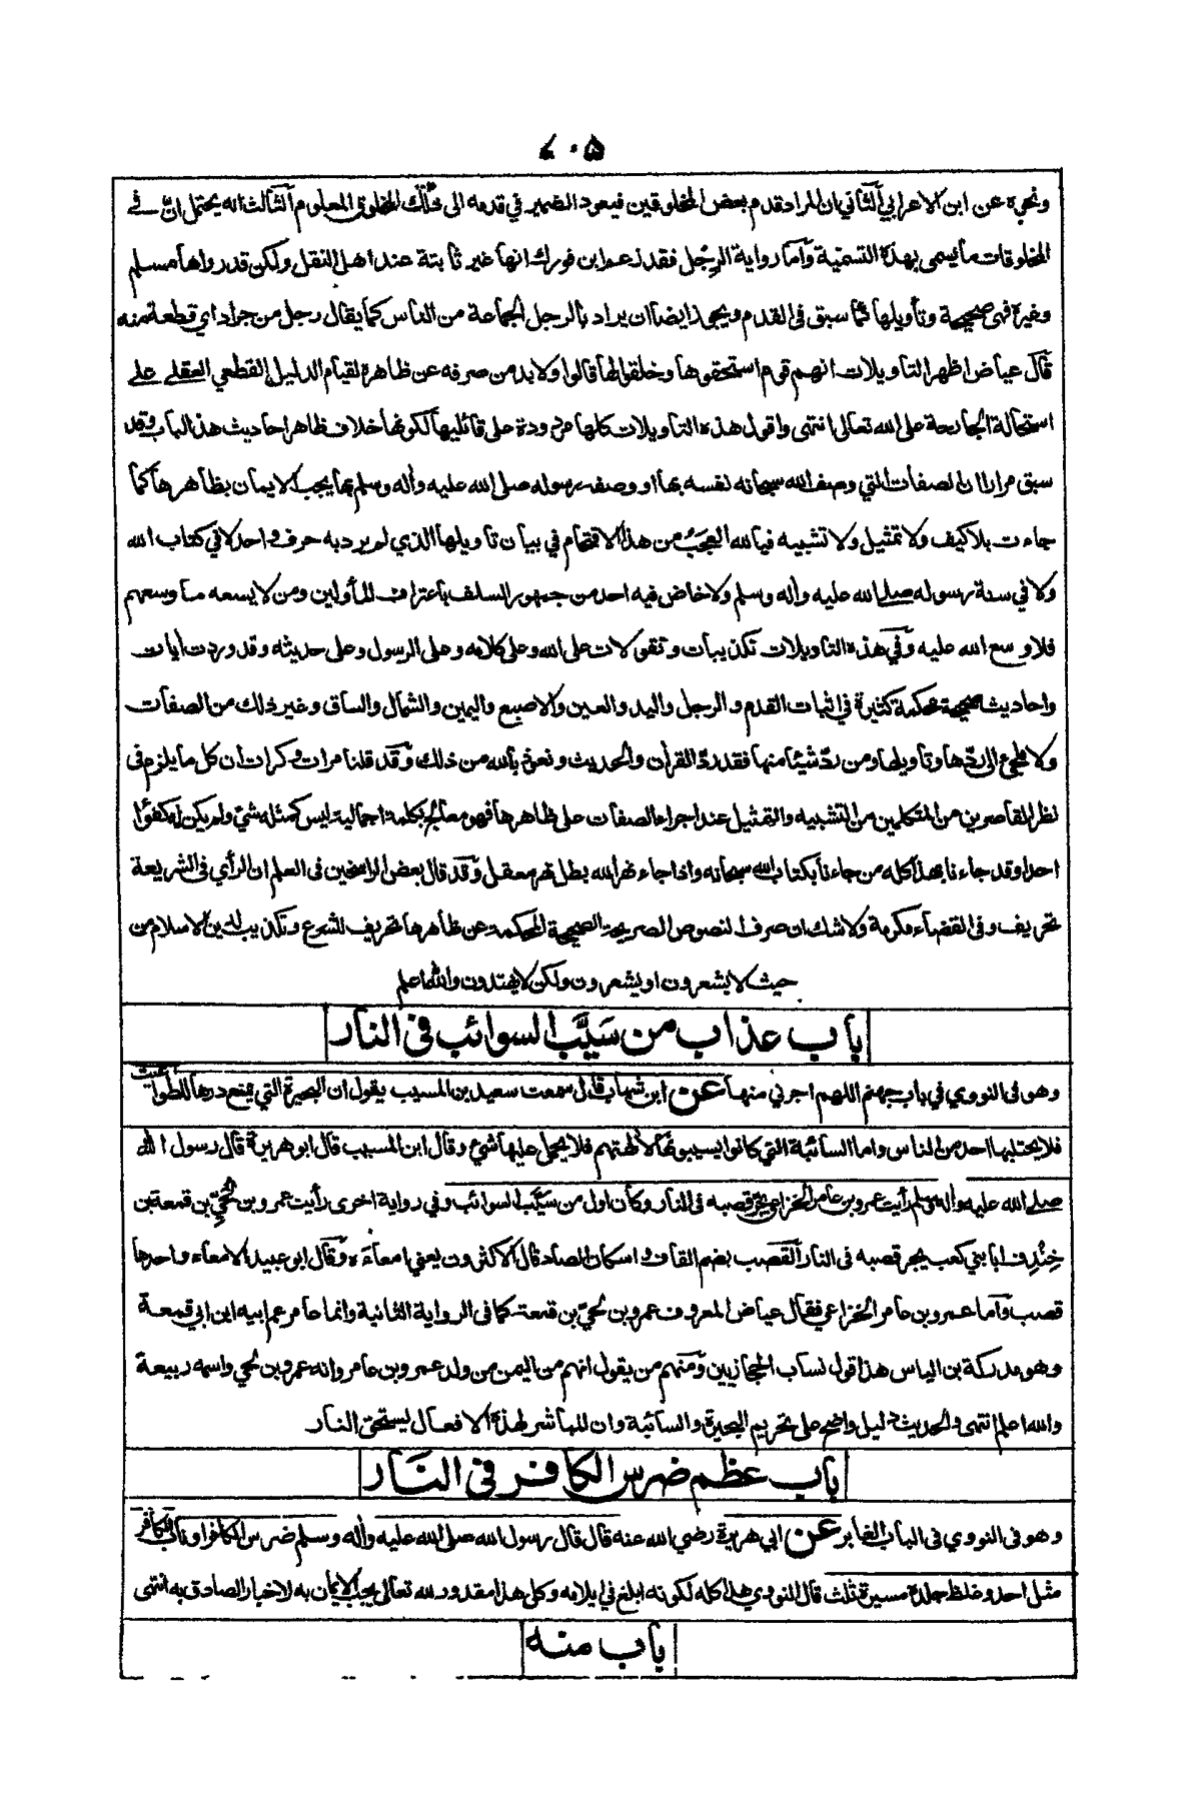 ٧٠٥
ونحوه عن ابن الاعرابي الثاني ان المراد قدم بعض المخلوقين فيعود الضمير في قدمه الى ذلك المخلوق المعلوم الثالث انه يحتمل ان في
المخلوقات ما يسمى بهذه التسمية وأما رواية الرجل فقد زعم ابن فورك انها غير ثابتة عند اهل النقل ولكن قد رواها مسلم
وغيره فهي صحيحة وتأويلها كما سبق في القدم ويجوز ايضا ان يراد بالرجل الجماعة من الناس كما يقال رجل من جراد اي قطعة منه
قال عياض اظهر التأويلات انهم قوم استحقوها وخلقوا لها قالوا ولا بد من صرفه عن ظاهره لقيام الدليل القطعي العقلي على
استحالة الجارحة على الله تعالى انتهى واقول هذه التأويلات كلها مردودة على قائليها لكونها خلاف ظاهر احاديث هذا الباب وقد
سبق مرارا ان الصفات التي وصف الله سبحانه نفسه بها او وصفه رسوله صلى الله عليه وأله وسلم بها يجب الايمان بظاهرها كما
جاءت بلا كيف ولا تمثيل ولا تشبيه فيالله العجب من هذا الاقتحام في بيان تأويلها الذي لم يرد به حرف واحد لا في كتاب الله
ولا في سنة رسوله صلى الله عليه وأله وسلم ولا خاض فيه احد من جمهور السلف باعتراف المأولين ومن لا يسعه ما وسعهم
فلا وسع الله عليه وفي هذه التأويلات تكذيبات وتقولات على الله وعلى كلامه وعلى الرسول وعلى حديثه وقد وردت أيات
واحاديث صحيحة محكمة كثيرة في اثبات القدم والرجل واليد والعين والاصبع واليمين والشمال والساق وغير ذلك من الصفات
ولا ملجئ الى ردها وتأويلها ومن ردّ شيئا منها فقد ردّ القرأن والحديث ونعوذ بالله من ذلك وقد قلنا مرات وكرات ان كل ما يلزم في
نظر القاصرين من المتكلمين من التشبيه والتمثيل عند اجراء الصفات على ظاهرها فهو معالج بكلمة اجمالية ليس كمثله شيء ولم يكن له كفوًا
احد وقد جاءنا بهذا كله من جاءنا بكتاب الله سبحانه واذا جاء نهر الله بطل نهر معقل وقد قال بعض الراسخين في العلم ان الرأي في الشريعة
تحريف وفي القضاء مكرمة ولا شك ان صرف النصوص الصريحة الصحيحة المحكمة عن ظاهرها تحريف للشرع وتكذيب لدين الاسلام من
حيث لا يشعرون او يشعرون ولكن لا يهتدون والله اعلم
باب عذاب من سَيَّب السوائب فى النار
وهو فى النووي في باب جهنم اللهم اجرني منها عن ابن شهاب قال سمعت سعيد بن المسيب يقول ان البحيرة التي يمنع درها للطواغيت
فلا يحتلبها احد من الناس واما السائبة التي كانوا يسيبونها لألهتهم فلا يحمل عليها شيء وقال ابن المسيب قال ابو هريرة قال رسول الله
صلى الله عليه وأله وسلم رأيت عمرو بن عامر الخزاعي يجرّ قصبه فى النار وكان اول من سَيَّب السوائب وفي رواية اخرى رأيت عمرو بن لُحَيّ بن قمعة بن
خِنْدِف ابا بني كعب يجر قصبه فى النار القصب بضم القاف واسكان الصاد قال الاكثرون يعني امعاءه وقال ابو عبيد الامعاء واحدها
قصب وأما عمرو بن عامر الخزاعي فقال عياض المعروف عمرو بن لحيّ بن قمعة كما فى الرواية الثانية وانما عامر عم ابيه ابن ابي قمعة
وهو مدركة بن الياس هذا قول نساب الحجازيين ومنهم من يقول انهم من اليمن من ولد عمرو بن عامر وانه عمرو بن لحي واسمه ربيعة
والله اعلم انتهى والحديث دليل واضح على تحريم البحيرة والسائبة وان المباشر لهذه الافعال يستحق النار
باب عظم ضرس الكافر فى النَار
وهو فى النووي فى الباب الغابر عن ابي هريرة رضي الله عنه قال قال رسول الله صلى الله عليه وأله وسلم ضرس الكافر او ناب الكافر
مثل احد وغلظ جلده مسيرة ثلث قال النووي هذا كله لكونه ابلغ في ايلامه وكل هذا مقدور لله تعالى يجب الايمان به لاخبار الصادق به انتهى
باب منه